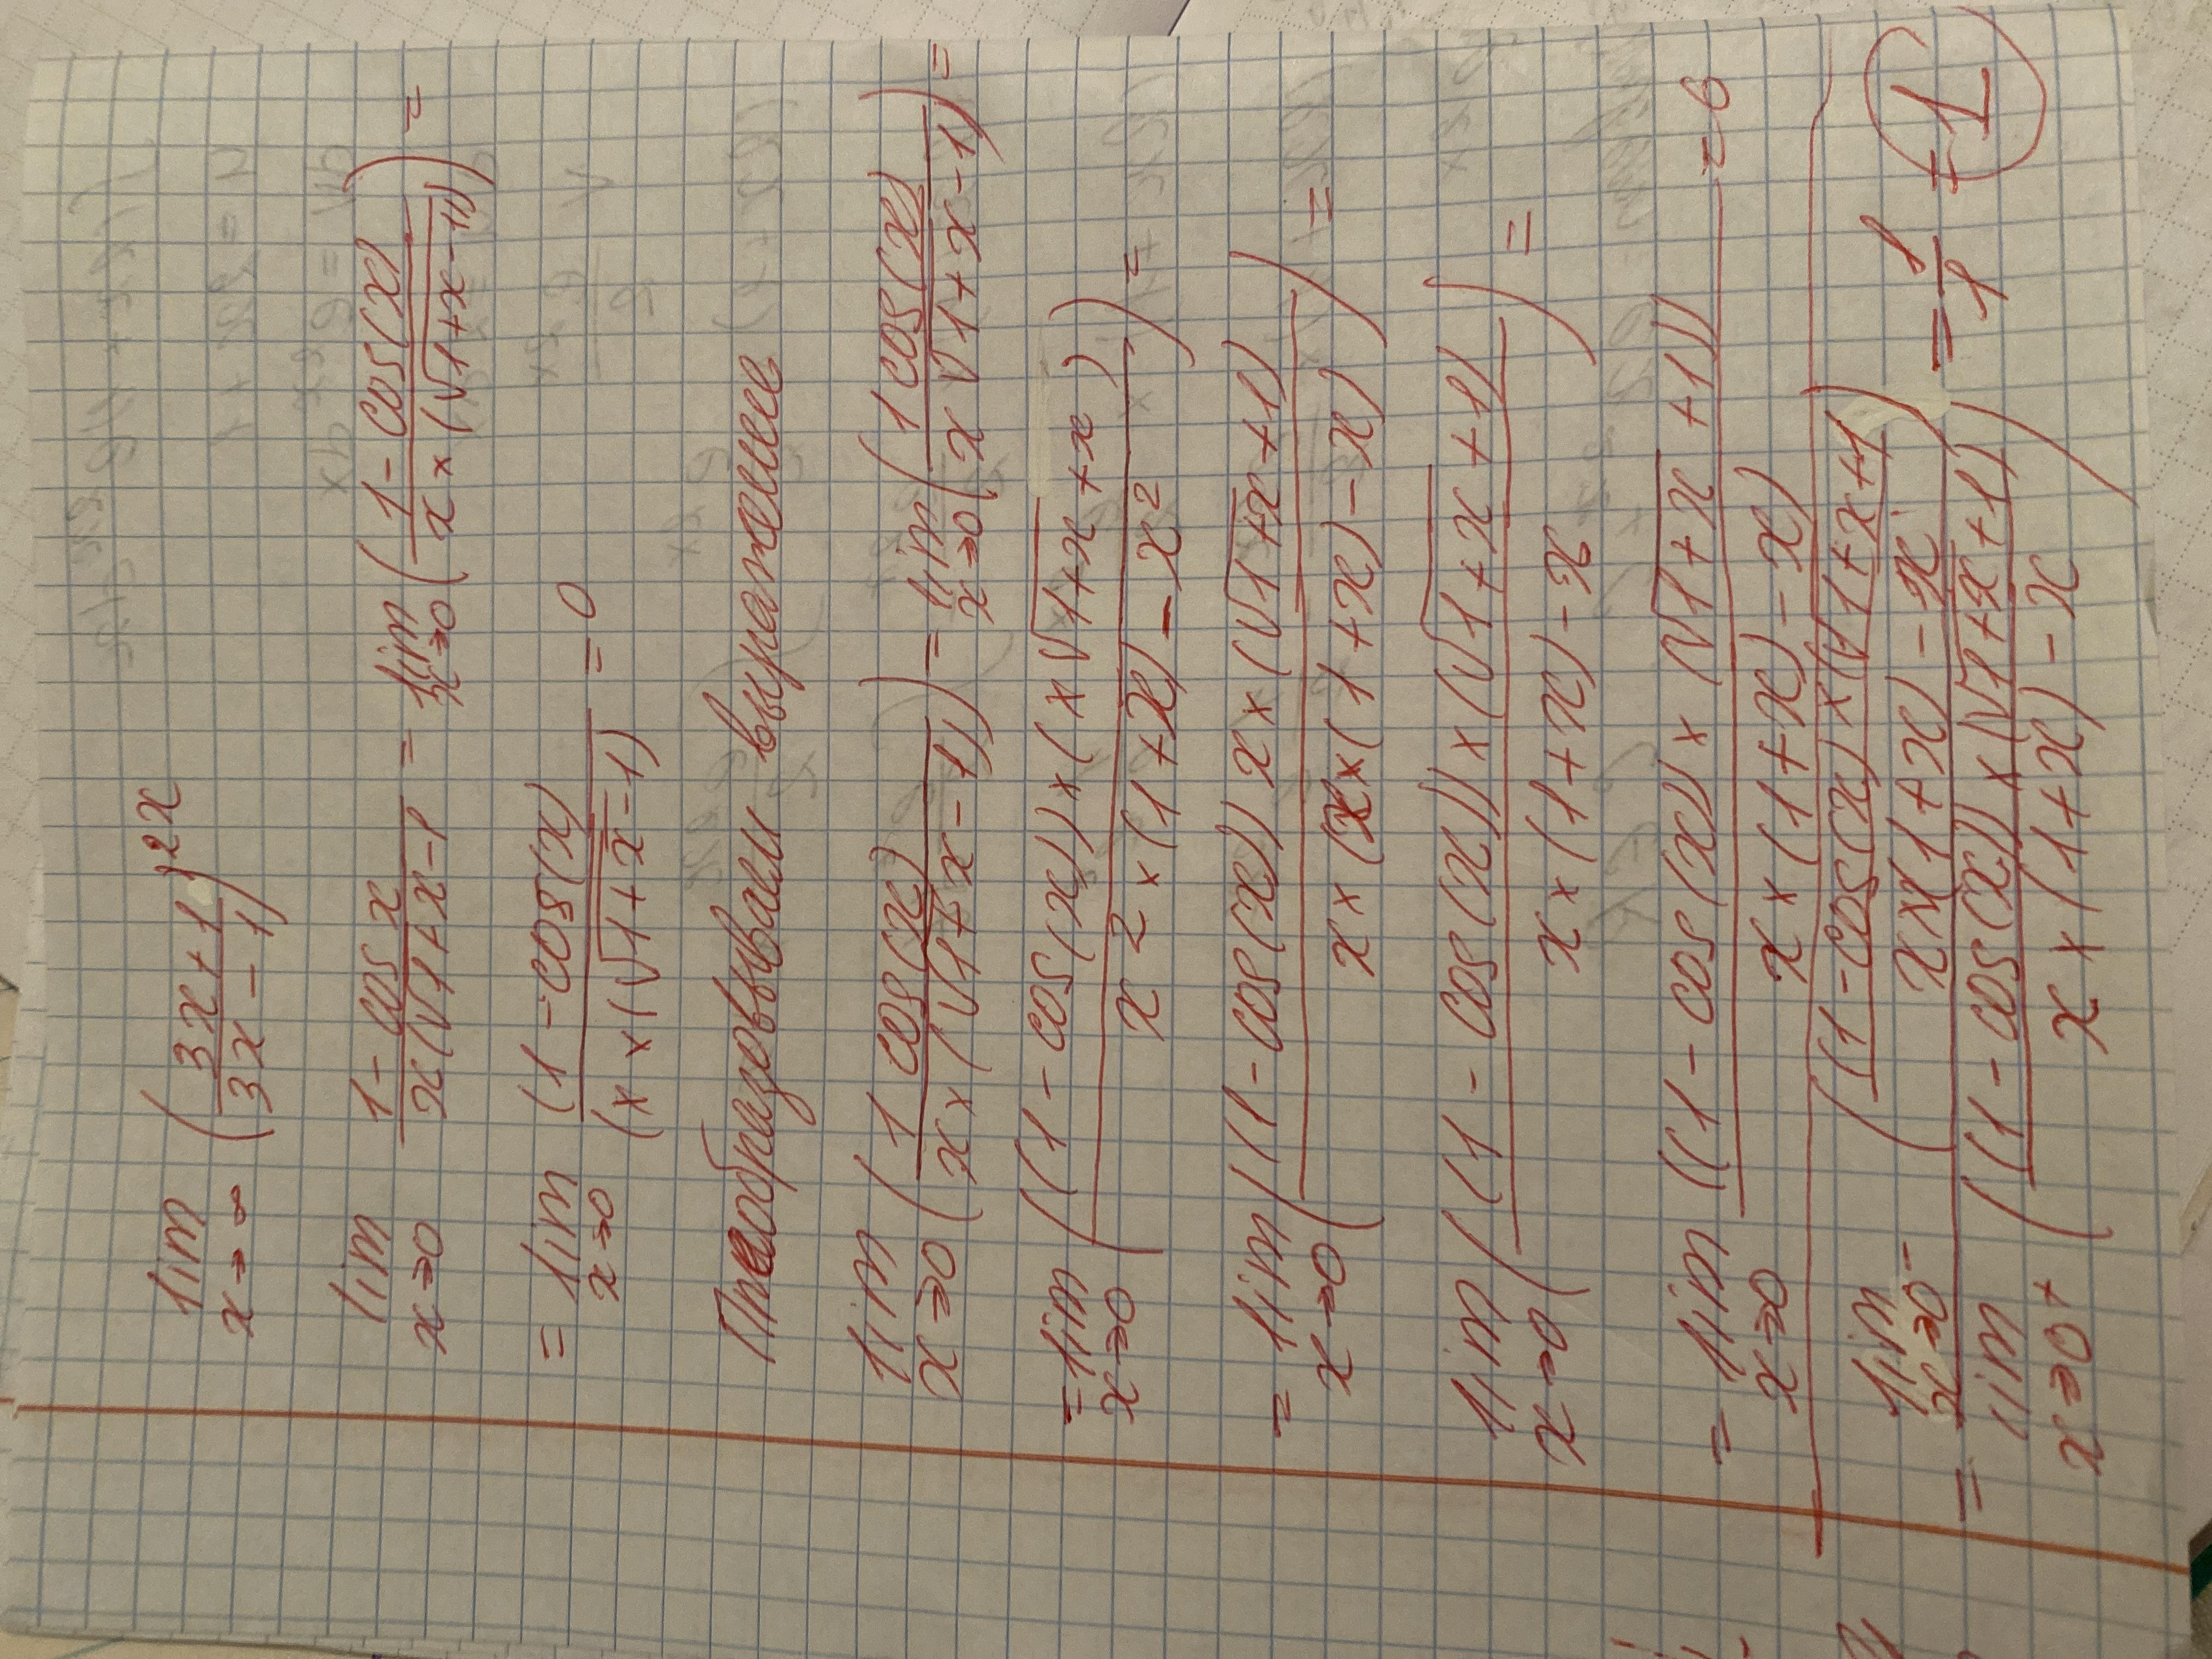 lim x→∞ ((3x+1)/(3x-1))^2x
lim x→0 (1-cos x)/(x(√1+x-1) = lim x→0 ((1-cos(x))/(x×(√1+x-1))) =
= lim x→0 (1-cos(x))/(x×(√1+x-1) = 0
Преобразовываем выражение
lim x→0 ((1 cos(x))/(x×(√1+x-1))) = lim x→0 ((1 cos(x))/(x √1+x-1)) =
= lim x→0 (((1-cos(x))×(×√1+x+x))/(x²×(1+x)-x²)) =
= lim x→0 (((1-cos(x)) x×(√1+x+1))/(x×(x×(1+x)-x)) =
lim x→0 (((1-cos(x))×(√1+x+1))/(x×(1+x)-x) =
= lim x→0 ((1-cos(x))×(√1+x+1))/(x×(1+x)-x) = 6
lim x→0- (((1-cos(x)×(√1+x+1)/(x×(1+x)-x)
= lim x→0+ (((1-cos(x))×(√1+x+1))/(x×(1+x)-x) = 1/1 + 1